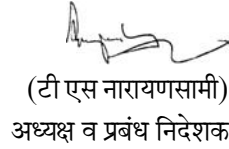 (टी एस नारायणसामी)
अध्यक्ष व प्रबंध निदेशक